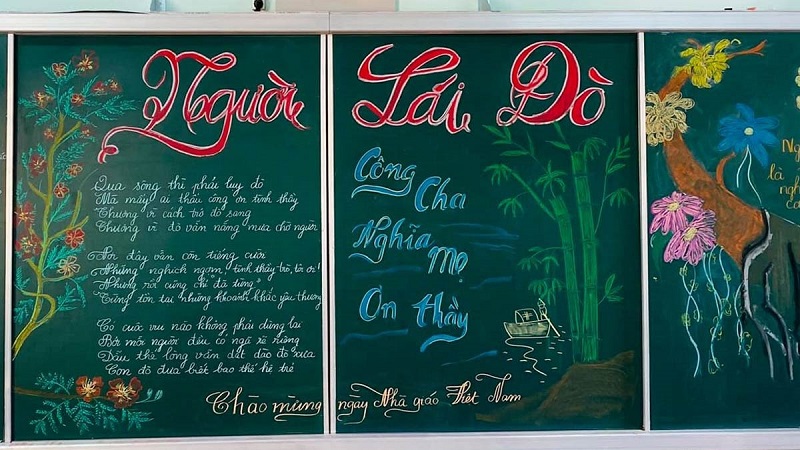 Người
Lái Đò
Qua sông thì phải luỵ đò
Mà mấy ai thấu công ơn tình thầy
Thương vì cách trở đò sang
Thương vì đò vẫn nắng mưa chở người
Nơi đây vẫn còn tiếng cười
Những nghịch ngợm, tình thầy trò, tôi ơi!
Nhưng rồi cũng chỉ "đã từng"
Từng tồn tại những khoảnh khắc yêu thương
Có cuộc vui nào không phải dừng lại
Bởi mỗi người đều có ngã rẽ riêng
Dẫu thế lòng vẫn dứt đáo đò xưa
Con đò đưa biết bao thế hệ trẻ
Công Cha
Nghĩa Mẹ
Ơn thầy
Chào mừng ngày Nhà giáo Việt Nam
Ng
là
ngh
ca